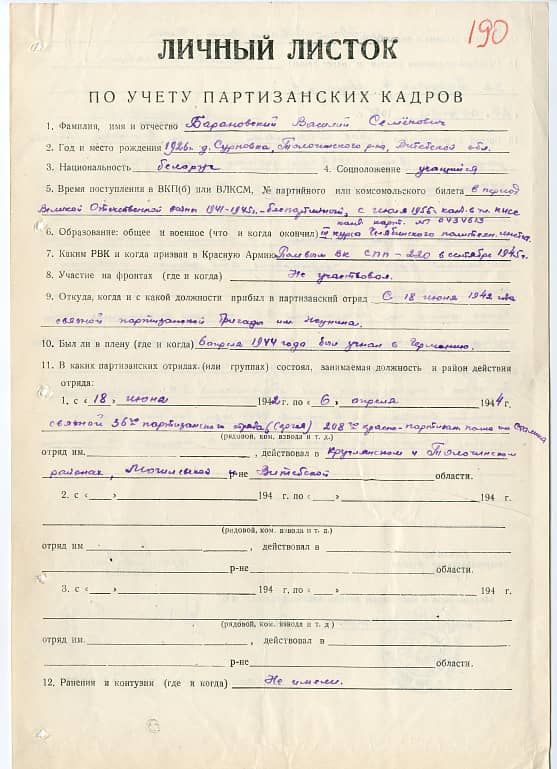 190
ЛИЧНЫЙ ЛИСТОК
ПО УЧЕТУ ПАРТИЗАНСКИХ КАДРОВ
1. Фамилия, имя и отчество Барановский Василий Семёнович
2. Год и место рождения 1926 г. д. Сурновка, Толочинского р-на, Витебской обл.
3. Национальность белорус 4. Соцположение учащийся
5. Время поступления в ВКП(б) или ВЛКСМ, № партийного или комсомольского билета в период
Великой Отечественной войны 1941-1945г.-беспартийный, с июля 1956г. канд. в чл. КПСС
канд. карт. № 0434613
6. Образование: общее и военное (что и когда окончил) III курса Челябинского политехн. инст.
7. Каким РВК и когда призван в Красную Армию Полевым ВК СПП-220 в сентябре 1945г.
8. Участие на фронтах (где и когда) Не участвовал.
9. Откуда, когда и с какой должности прибыл в партизанский отряд С 18 июня 1942 г.
связной партизанской бригады им.
10. Был ли в плену (где и когда) 6 апреля 1944 года был угнан в Германию.
11. В каких партизанских отрядах (или группах) состоял, занимаемая должность и район действия
отряда:
1. с «18» июня 1942 г. по «6» апреля 1944 г.
связной 36го партизанского отряда (Сергея) 208го партизан полка им Сталина
(рядовой, ком. взвода и т. д.)
отряд им. , действовал в Круглянском и Толочинском
районах, Могилевской р-не Витебской области.
2. с « » 194 г. по « » 194 г.
(рядовой, ком. взвода и т. д.)
отряд им , действовал в
р-не области.
3. с « » 194 г. по « » 194 г.
(рядовой, ком. взвода и т. д )
отряд им. , действовал в
р-не области.
12. Ранения и контузии (где и когда) Не имел.